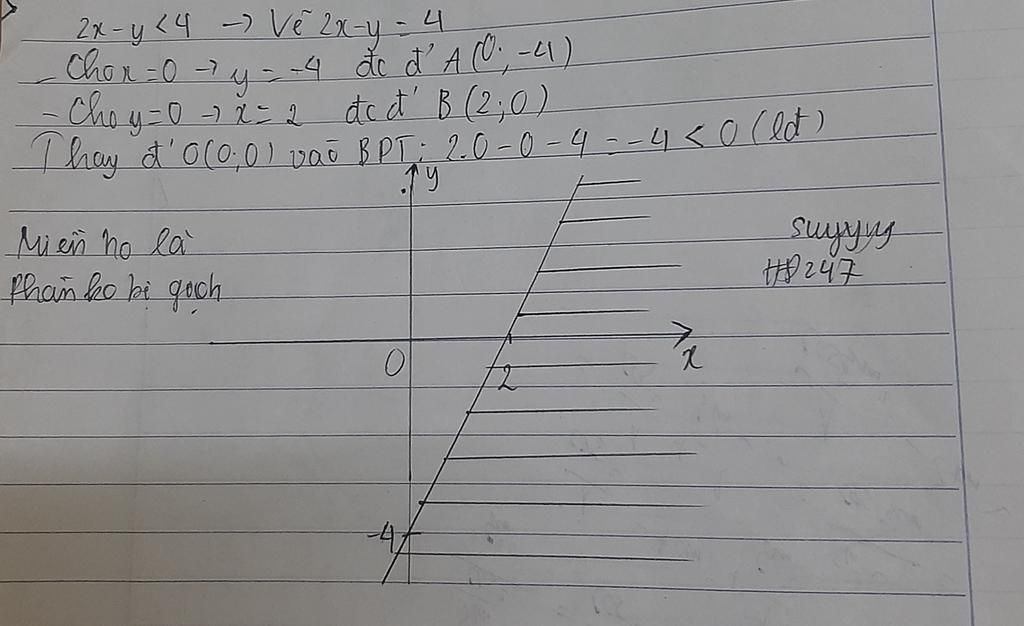 2x-y<4 → Vẽ 2x-y=4
- Cho x=0 → y=-4 đc đ' A(0;-4)
- Cho y=0 → x=2 đc đ' B(2;0)
Thay đ' O(0;0) vào BPT: 2.0-0-4=-4<0 (lđ)
y
Miền no là
Phần ko bị gạch
247
0
2
x
-4